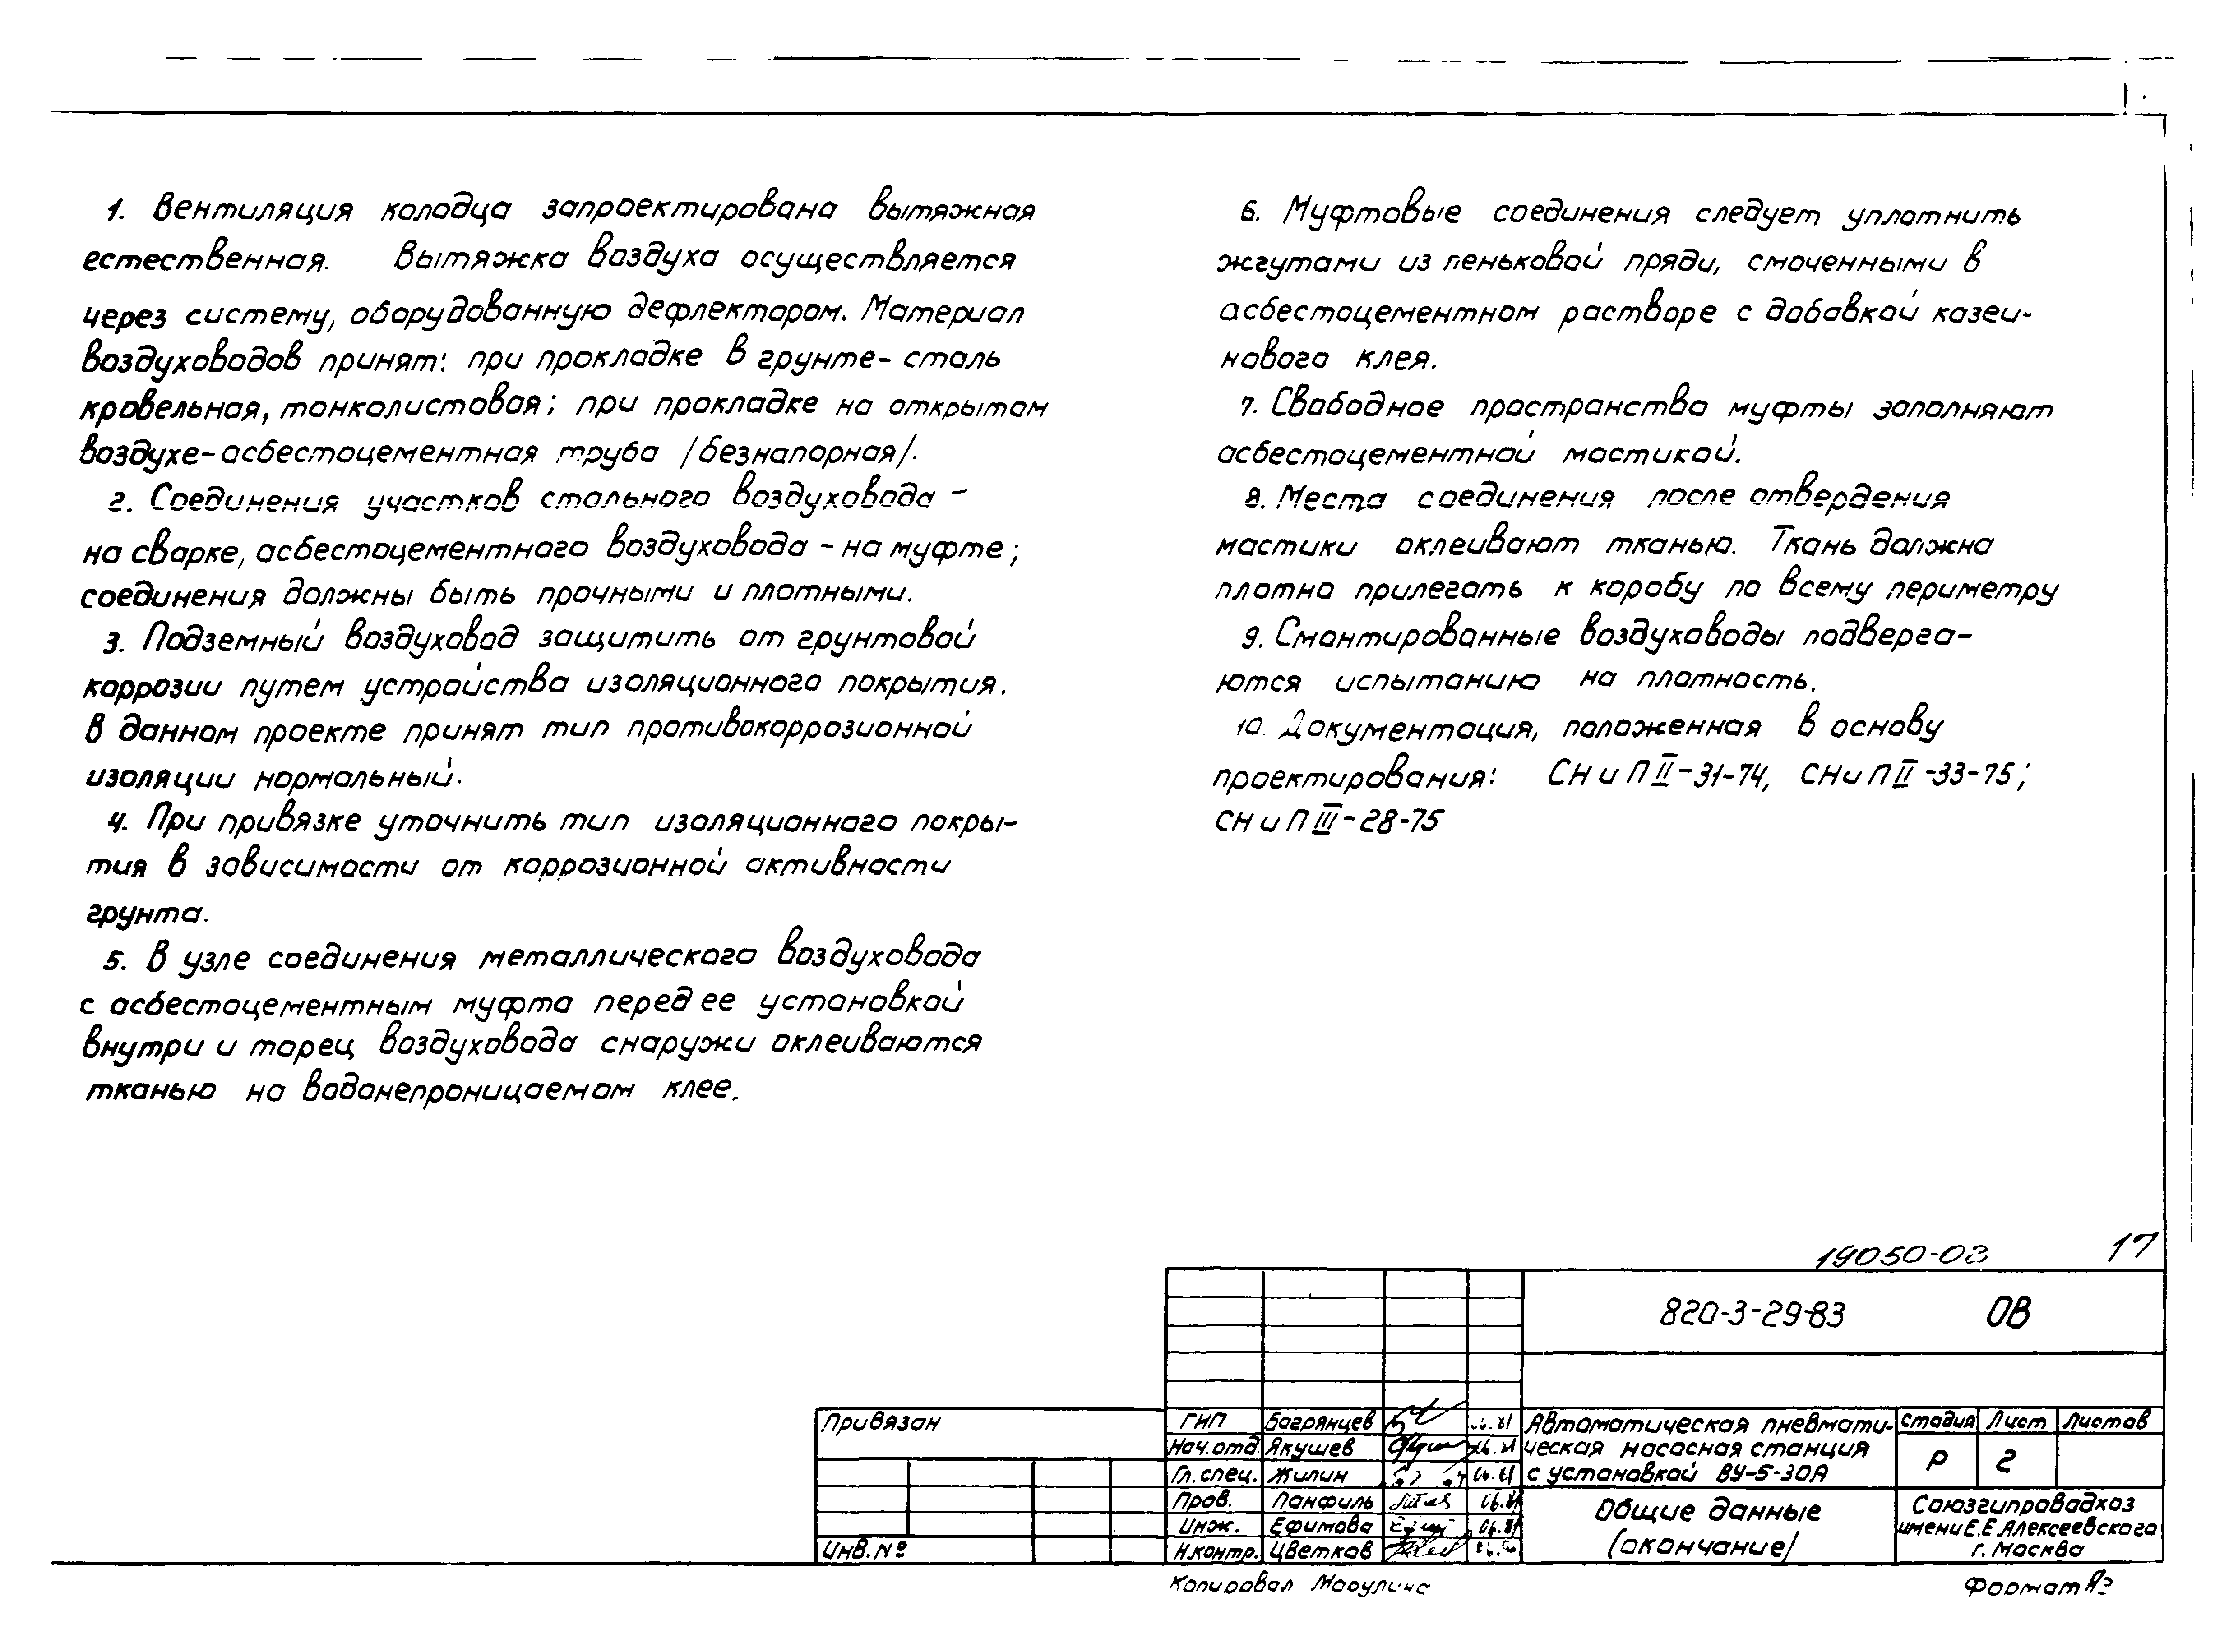 1. Вентиляция колодца запроектирована вытяжная
естественная. Вытяжка воздуха осуществляется
через систему, оборудованную дефлектором. Материал
воздуховодов принят: при прокладке в грунте- сталь
кровельная, тонколистовая; при прокладке на открытом
воздухе-асбестоцементная труба /безнапорная/.
2. Соединения участков стального воздуховода -
на сварке, асбестоцементного воздуховода - на муфте;
соединения должны быть прочными и плотными.
3. Подземный воздуховод защитить от грунтовой
коррозии путем устройства изоляционного покрытия.
В данном проекте принят тип противокоррозионной
изоляции нормальный.
4. При привязке уточнить тип изоляционного покры-
тия в зависимости от коррозионной активности
грунта.
5. В узле соединения металлического воздуховода
с асбестоцементным муфта перед ее установкой
внутри и торец воздуховода снаружи оклеиваются
тканью на водонепроницаемом клее.
6. Муфтовые соединения следует уплотнить
жгутами из пеньковой пряди, смоченными в
асбестоцементном растворе с добавкой казеи-
нового клея.
7. Свободное пространство муфты заполняют
асбестоцементной мастикой.
8. Места соединения после отвердения
мастики оклеивают тканью. Ткань должна
плотно прилегать к коробу по всему периметру
9. Смонтированные воздуховоды подверга-
ются испытанию на плотность.
10. Документация, положенная в основу
проектирования: СН и П II-31-74, СН и П II-33-75;
СН и П III-28-75
17
820-3-29-83 ОВ
Привязан
Инв. №
ГИП Багрянцев
Нач.отд. Якушев
Гл. спец. Жилин
Пров. Панфиль
Инж. Ефимова
Н.контр. Цветков
Автоматическая пневмати-
ческая насосная станция
с установкой ВУ-5-30А
Стадия Лист Листов
Р 2
Общие данные
/окончание/
Союзгипроводхоз
имени Е.Е Алексеевского
г. Москва
Копировал
Формат А3